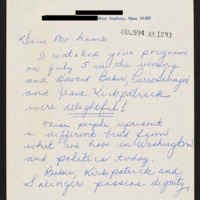 West Newbury, Mass 01985
Dear Mr. Lamb
I watched your program
on July 5 in the evening
and Howard Baker,
and Jeane Kirkpatrick
were delightful!
These people represent
a different breed from
what we have in Washington
and politics today.
Baker, Kirkpatrick and
Salinger possess dignity,